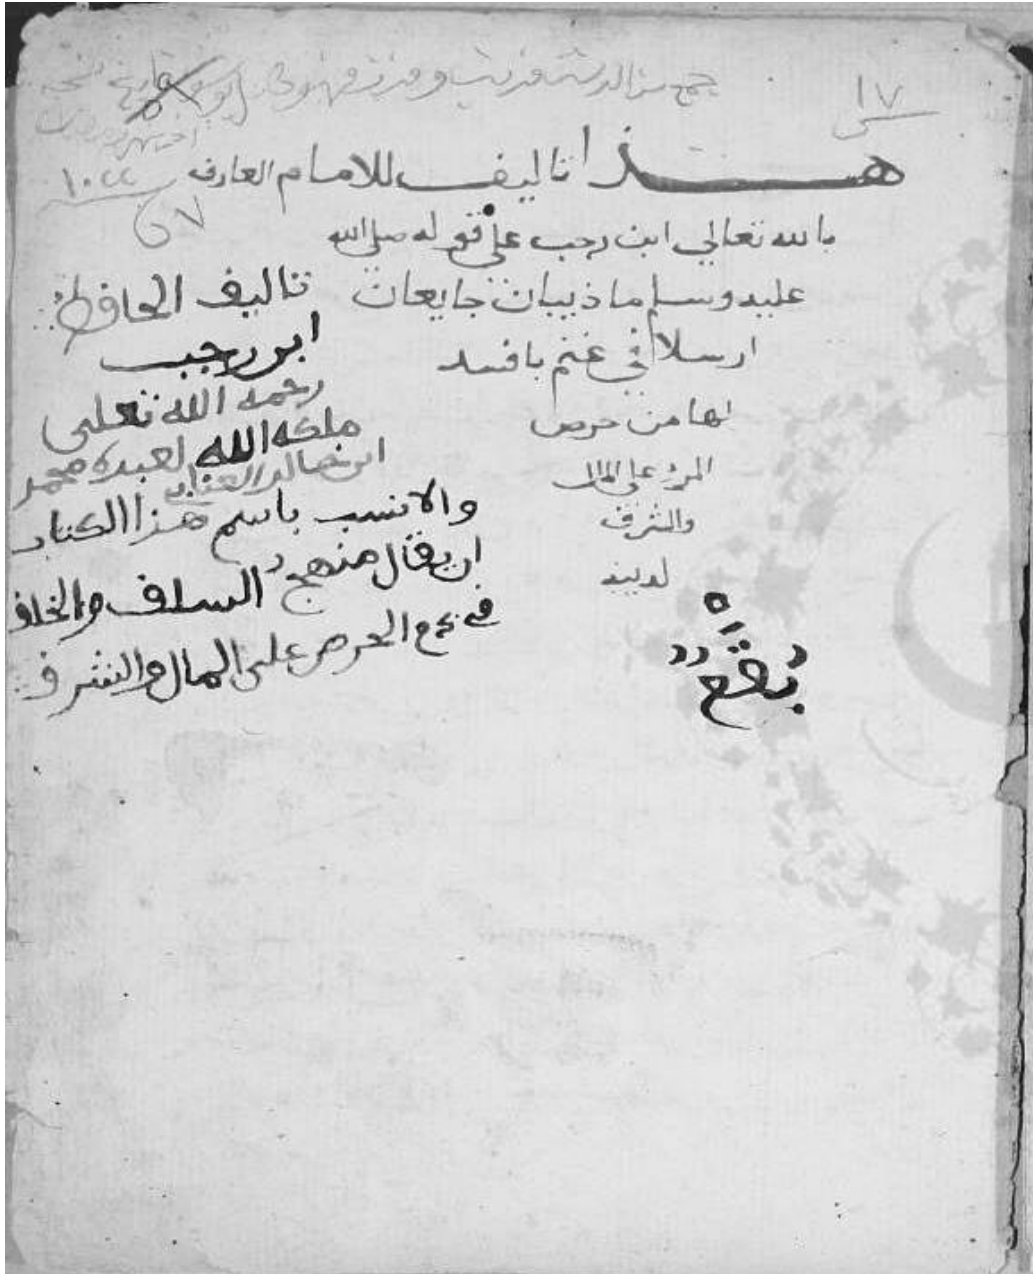 ١٧
هذا تاليف للامام العارف
بالله تعالي ابن رجب علي قوله صلي الله
عليه وسلم ماذيبان جايعان
ارسلا في غنم بافسد
لها من حرص
المرؤ علي المال
والشرف
لدينه
تاليف الحافظ
ابن رجب
رحمه الله تعلى
ملكه الله لعبده محمد
ابن خالد العنابي
والانسب باسم هذا الكتاب
ان يقال منهج السلف والخلف
في الحرص على المال والشرف
١٠٢٢